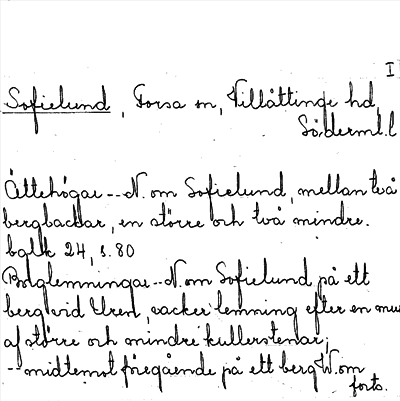 I
Sofielund, Forsa sn, Villåttinge hd,
Söderml.l
Ättehögar -- N. om Sofielund, mellan två
bergbackar, en större och två mindre.
bglk 24, s. 80
Borglemningar -- N. om Sofielund på ett
berg vid Uren, vacker lemning efter en mur
af större och mindre kullerstenar;
-- midtemot föregående på ett berg W. om
forts.